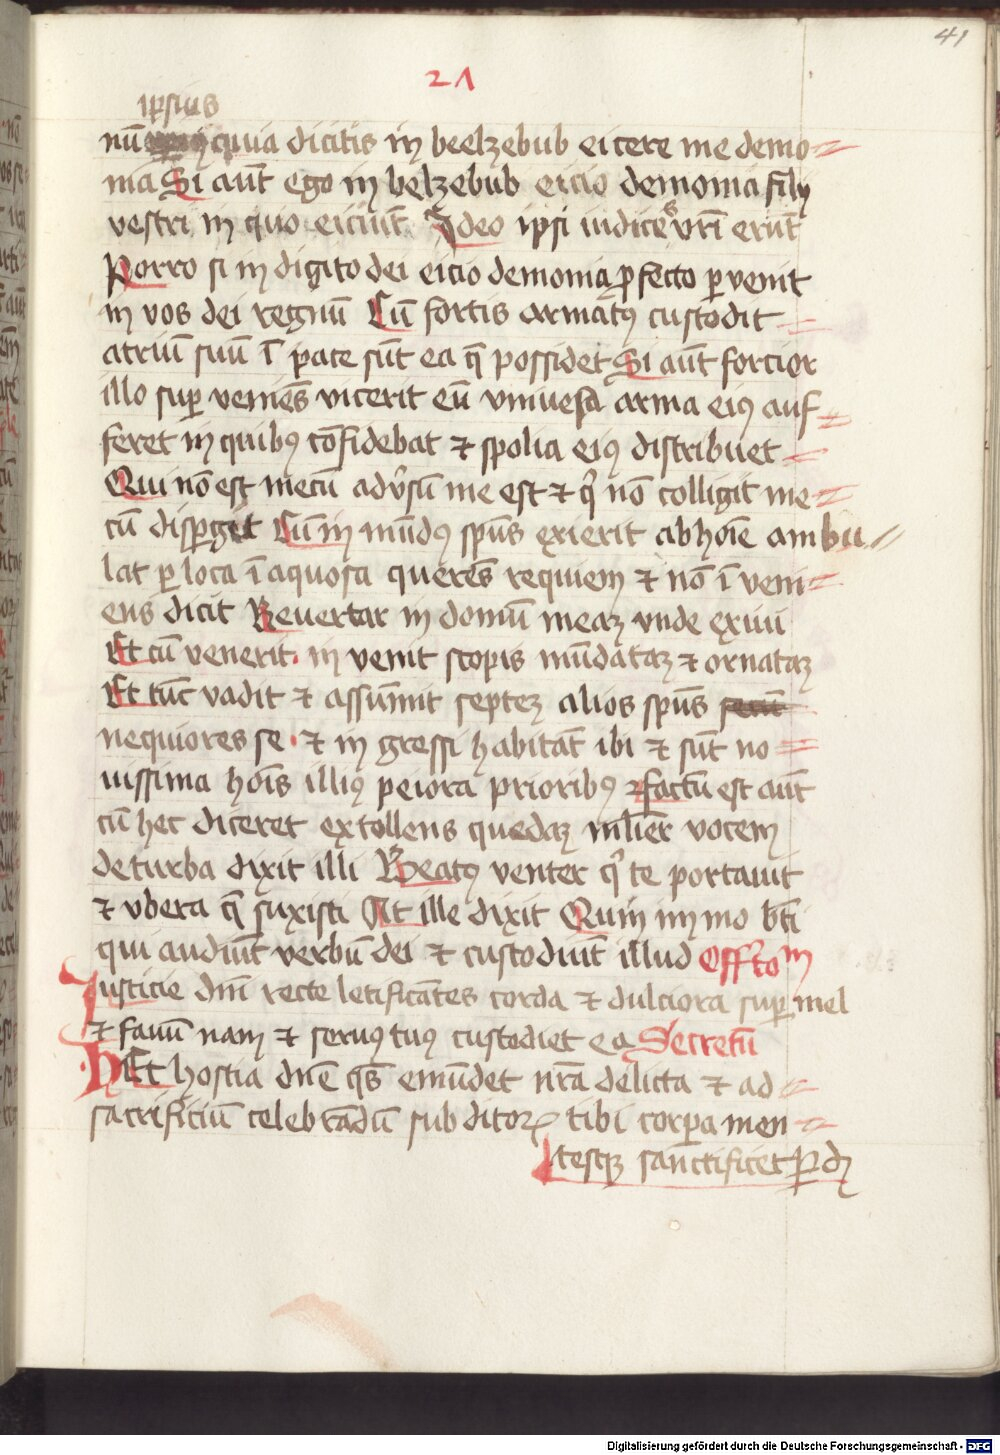 41
21
ipsius
nū quia dicitis in beelzebub eicere me demo=
nia Si aūt ego in belzebub eicio demonia filij
vestri in quo eiciūt Ideo ipsi iudices vr̄i erūt
Porro si in digito dei eicio demonia ꝓfecto ꝑvenit
in vos dei regnū Cū fortis armatꝰ custodit =
atriū suū ī pace sūt ea q̄ possidet Si aūt forcior
illo suꝑ veniēs vicerit eū vniuesa arma eiꝰ auf=
feret in quibꝰ cōfidebat ⁊ spolia eiꝰ distribuet =
Qui nō est mecū adv̓sū me est ⁊ q̇ nō colligit me=
cū disꝑgit Cū in mūdꝰ sp̄us exierit ab hoīe ambu //
lat ꝑ loca ī aquosa querēs requiem ⁊ nō ī veni=
ens dicit Reuertar in domū meaꝫ vnde exiui
Et cū venerit in venit scopis mūdataꝫ ⁊ ornataꝫ
Et tūc vadit ⁊ assūmit septeꝫ alios sp̄us secū
nequiores se ⁊ in gressi habitāt ibi ⁊ sūt no =
uissima hoīs illiꝰ peiora prioribꝰ ⁊ factū est aūt
cū hec diceret extollens quedaꝫ ml̄ier vocem
de turba dixit illi Beatꝰ venter q̇ te portauit
⁊ vbera q̄ suxisti At ille dixit Quin immo bt̄i
qui audiūt verbū dei ⁊ custodiūt illud Offtoᵐ
Iusticie dn̄i recte letificātes corda ⁊ dulciora suꝑ mel
⁊ fauū nam ⁊ seruꝰ tuꝰ custodiet ea Secretū
HEt hostia dn̄e q̄s emūdet nr̄a delicta ⁊ ad =
sacrificiū celebrādū sub ditoꝝ tibi corꝑa men =
tesqꝫ sanctificet P dn̄
Digitalisierung gefördert durch die Deutsche Forschungsgemeinschaft - DFG